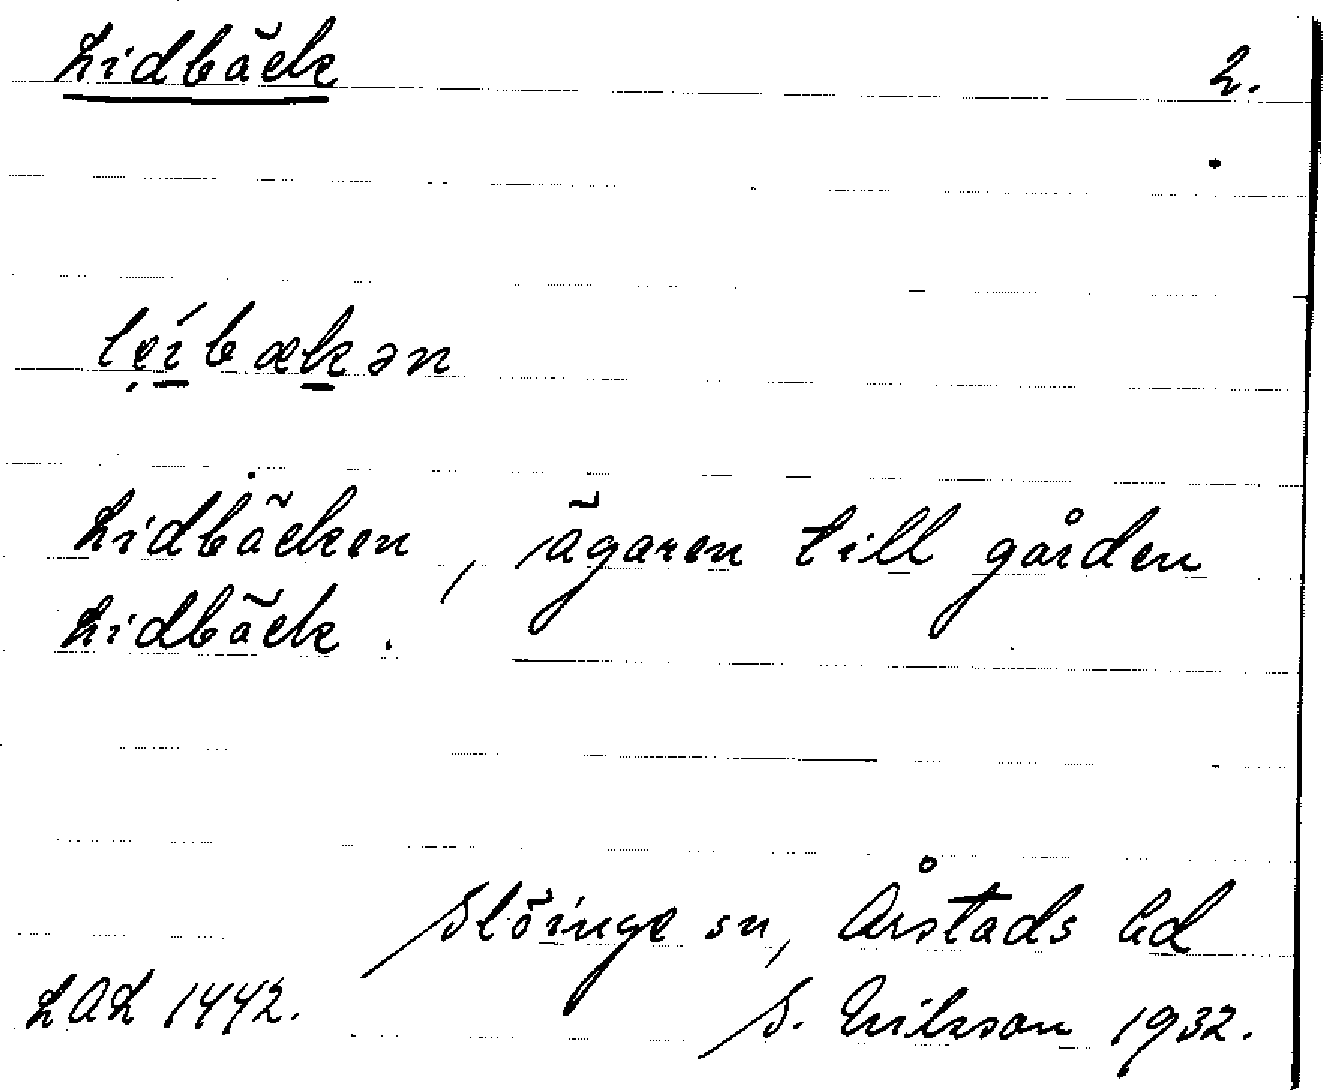 Lidbäck 2.
lẹíbækən
Lidbäcken, ägaren till gården
Lidbäck.
Slöinge sn, Årstads hd
LAL 1442. S. Nilsson 1932.